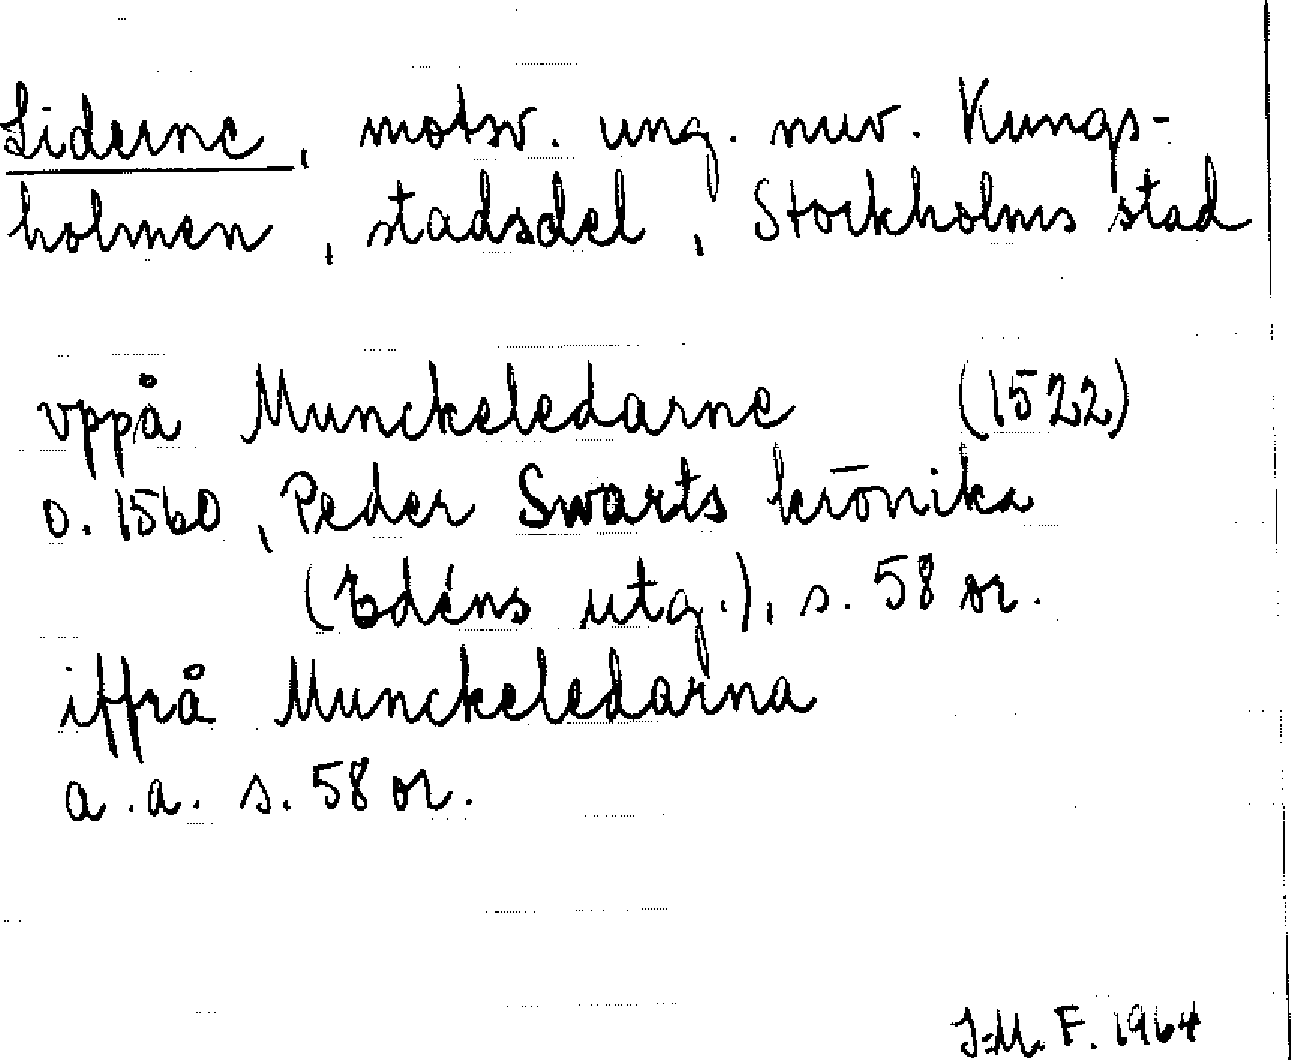 Liderne, motsv. ung. nuv. Kungs-
holmen, stadsdel, Stockholms stad
vppå Munckeledarne (1522)
o. 1560, Peder Swarts krönika
(Edéns utg.), s. 58 or.
iffrå Munckeledarna
a.a. s. 58 or.
J-M. F. 1964